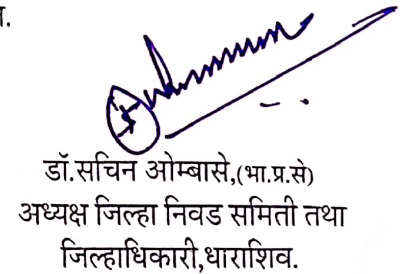 डॉ.सचिन ओम्बासे,(भा.प्र.से)
अध्यक्ष जिल्हा निवड समिती तथा
जिल्हाधिकारी,धाराशिव.